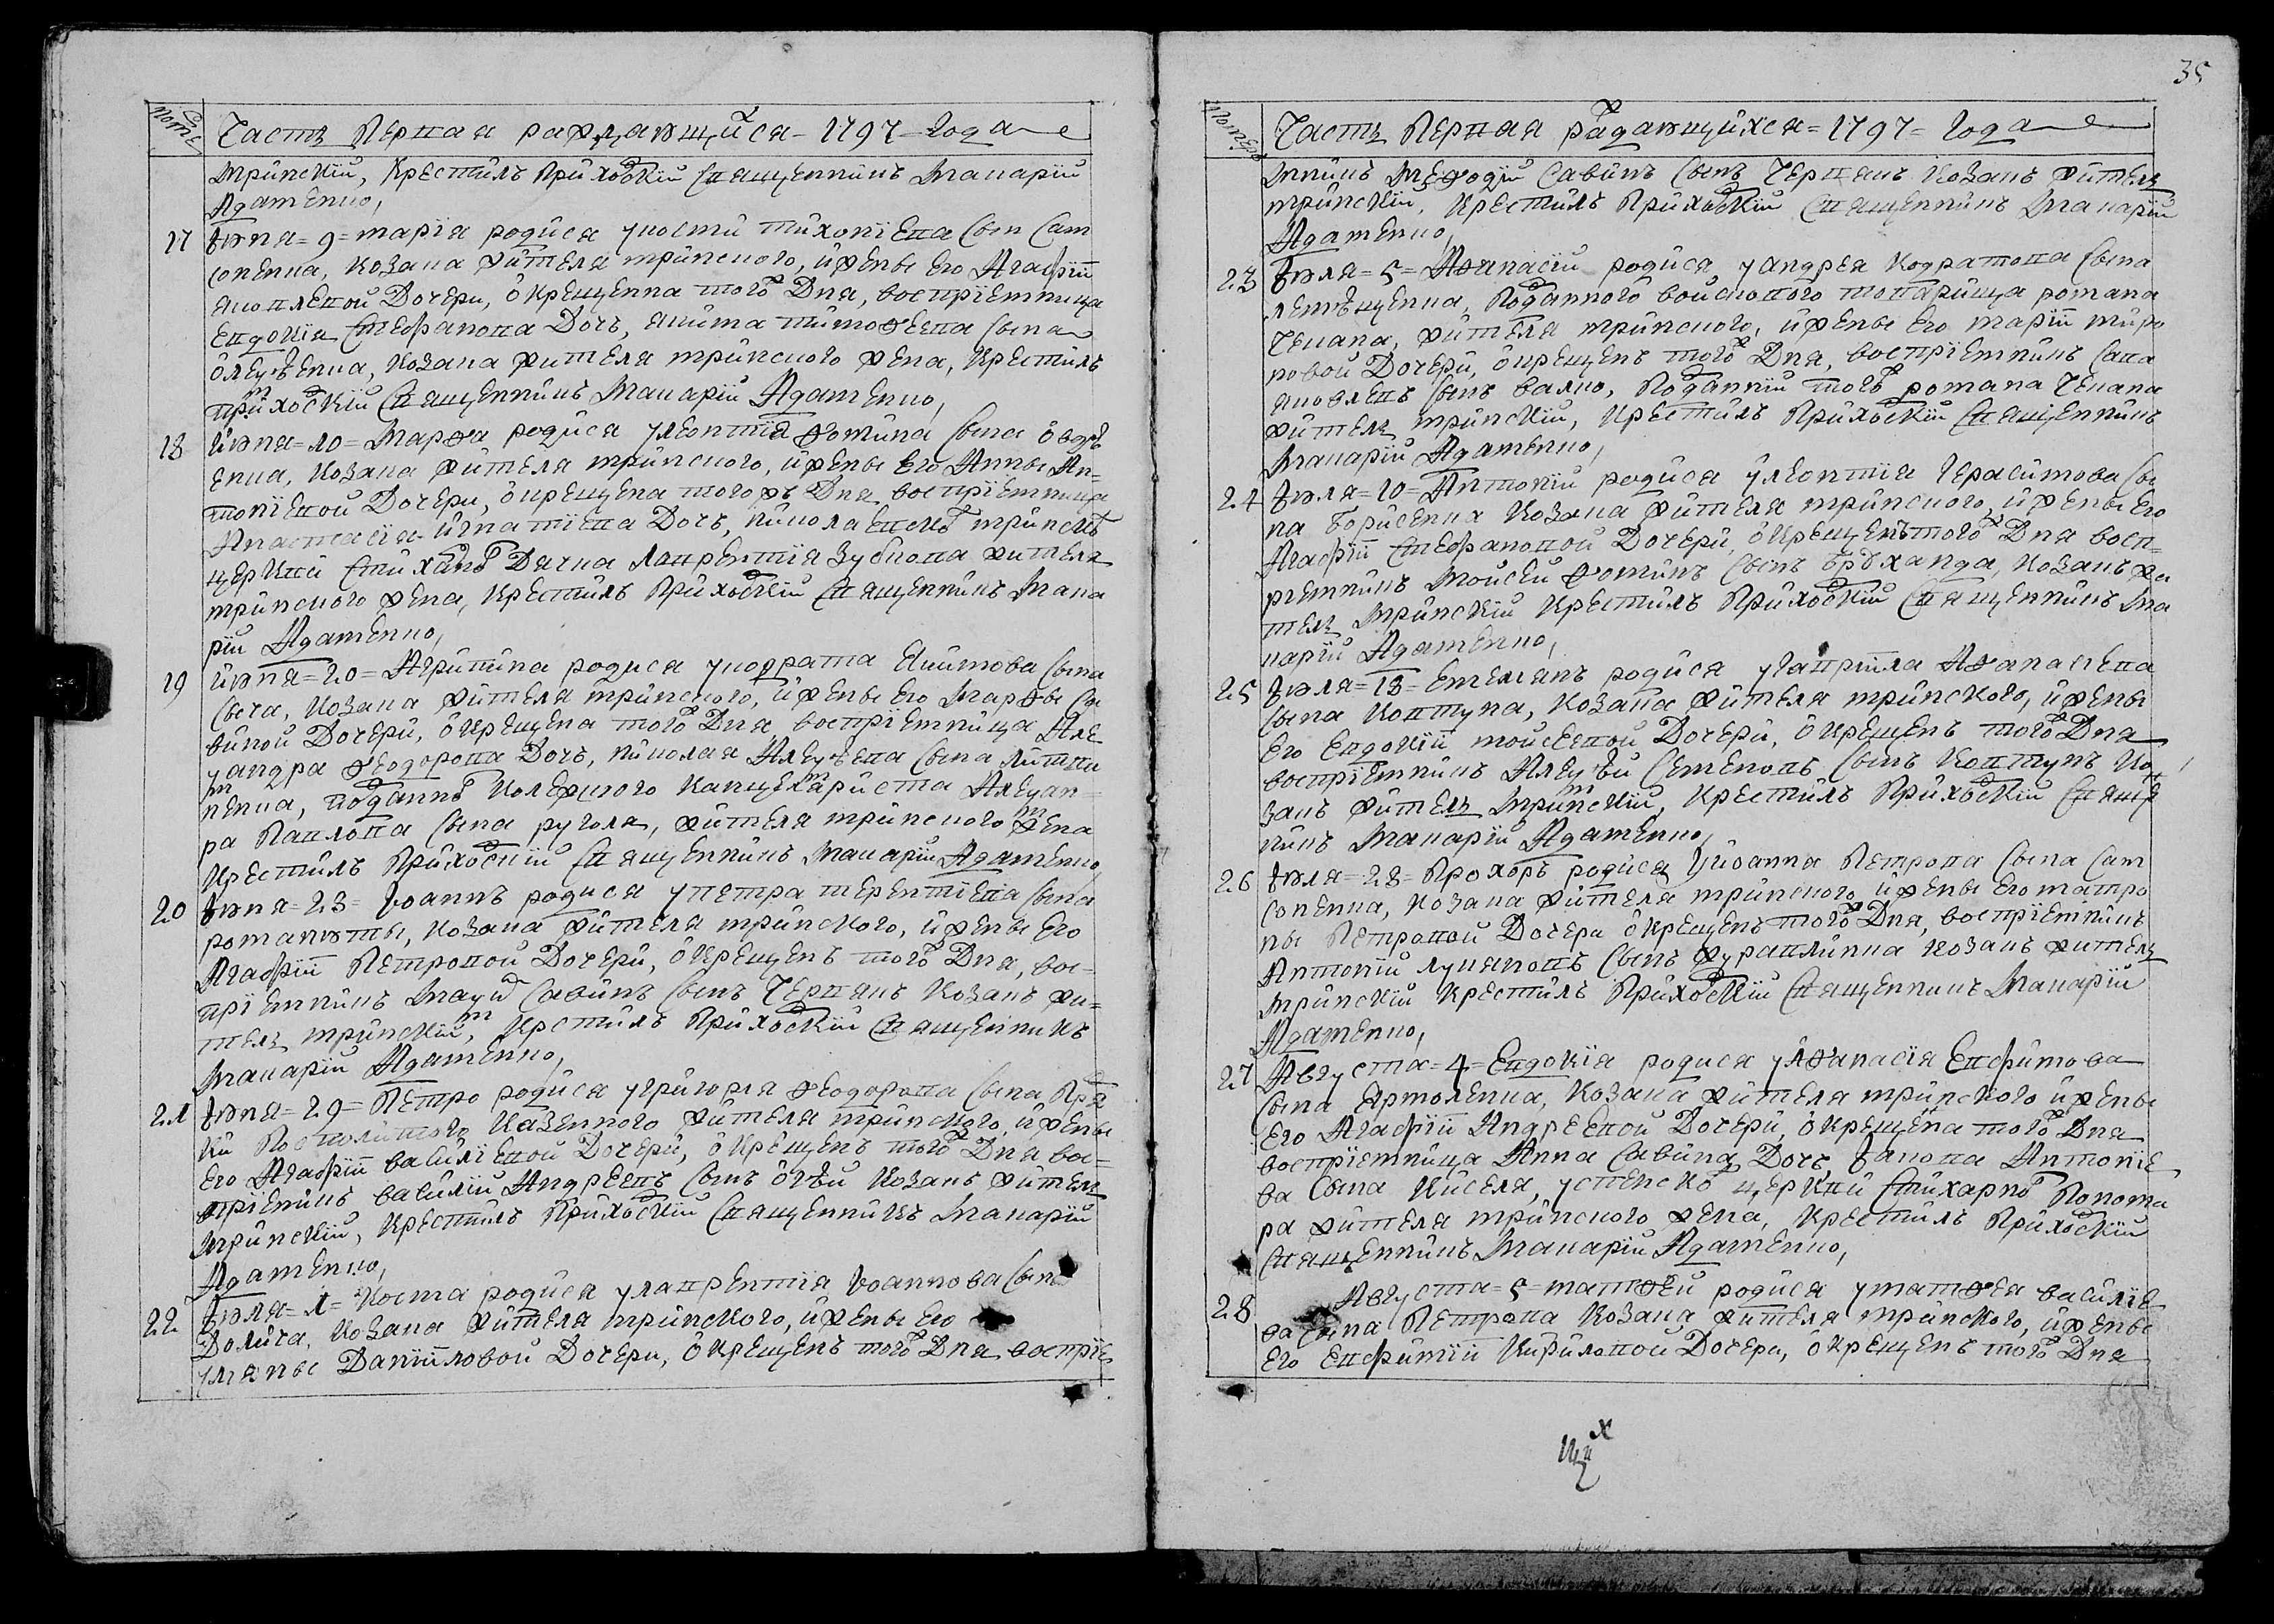 Номе
Часть Первая раждающийся – 1797 – года
мринскїй, Крестилъ Приходскїй Священникъ Макарїй
Адаменко,
17 Іюня = 9 = марїя родися укости тихонїева сын Сам
соненка, козака жителя мринского, и жены Его Агафїи
яковлевой Дочери, окрещенна того Дня, воспрїемница
Евдокїя Стефанова Дочь, якима тимоѳеева сына
Олеѯѣенка, козака жителя мринского жена, Крестилъ
приходскїй Священникъ Макарїй Адаменко,
18 Июня = 10 = Марѳа родися улеонтїя ѳомина сына
енка, козака жителя мринского, и жены Его Анны Ан=
тонїевой Дочери, окрещена того жъ Дня воспрїемница
Анастасїя игнатїева Дочь, николаевской мринской
церкви стихарного Дячка Лаврентїя Зубкова жителя
мринского жена, Крестилъ Приходскїй Священникъ Мака
рїй Адаменко,
19 Июня = 20 = Агрипина родися укодрата Якимова сына
сыча, козака жителя мринского, и жены Его Марѳы Са
виной Дочери, окрещена того Дня воспрїемница Але
ѯандра ѳеодорова Дочь, николая Алеѯѣева сына литви
ненка, подданного колежского канцеляриста Алеѯан=
ра Павлова сына , жителя мринского жена
Крестилъ Приходскїй Священникъ Макарїй Адаменко,
20 Іюня = 23 = Іоаннъ родися упетра терентїева сына
романюты, козака жителя мринского, и жены Его
Агафїи Петровой Дочери, окрещенъ того Дня, вос=
прїемникъ Савинъ сынъ Червякъ Козакъ жи=
тель мринскїй, Крстилъ Приходскїй Священникъ
Макарїй Адаменко,
21 Іюня = 29 = Петро родися угригорїя ѳеодорова сына
Посполитого казенного жителя мринского, и жены
Его Агафїи василїевой Дочери, окрещенъ того Дня вос=
прїемникъ василїй Андреевъ сынъ Козакъ житель
мринскїй, Крестилъ Приходскїй Священникъ Макарїй
Адаменко,
22 Іюля = 1 = Косма родися улаврентїя Іоаннова сына
козака жителя мринского, и жены Его
улїяны Данїиловой Дочери, окрещенъ того Дня воспрїе
35
Номеръ
Часть Первая раждающийхся = 1797 = года
мникъ Меѳодїй Савинъ сынъ Червякъ козакъ житель
мринскїй, Крестилъ Приходскїй Священникъ Макарїй
Адаменко,
23 Іюля = 5 = Аѳанасїй родися уандрея кодратова сына
, Подданного войскового товарища романа
Чекана, жителя мринского, и жены Его марїи миро
новой Дочери, окрещенъ того Дня, воспрїемникъ Сава
яковлевъ сынъ , Подданнїй тогожъ романа Чекана
житель мринскїй, Крестилъ Приходскїй Священникъ
Макарїй Адаменко,
24 Іюля = 10 = Антонїй родися улеонтїя Герасимова сы
на Борисенка Козака жителя мринского, и жены Его
Агафїи Стефановой Дочери, окрещенъ того Дня восп=
рїемникъ Мойсей ѳоминъ сынъ , козакъ жи
тель мринскїй Крестилъ Приходскїй Священникъ Ма
карїй Адаменко,
25 Іюля = 18 = Емелїянъ родися угаврїила Аѳанасїева
сына Ковтуна, козака жителя мринского, и жены
Его Евдокїи мойсеевой Дочери, окрещенъ того Дня
воспрїемникъ Алеѯѣй Семеновъ сынъ Ковтунъ Ко
закъ житель мринскїй, Крестилъ Приходскїй Священ
никъ Макарїй Адаменко,
26 Іюля = 28 = Прохоръ родися уиоанна Петрова сына Сам
соненка, козака жителя мринского, и жены Его матро
ны Петровой Дочери окрещенъ того Дня, воспрїемникъ
Антонїй лукяновъ сынъ журавлинка козакъ житель
мринскїй Крестилъ Приходскїй Священникъ Макарїй
Адаменко,
27 Августа = 4 = Евдокїя родися уАѳанасїя Евфимова
сына Ярмоленка, козака жителя мринского и жены
Его Агафїи Андреевой Дочери, окрещена того Дня
воспрїемница Анна Савина Дочь, Іакова Антонїе
ва сына Киселя, успенской церкви стихарного Понома
ра жителя мринского жена, Крестилъ Приходскїй
Священникъ Макарїй Адаменко,
28 Августа = 5 = матѳей родися уматѳея василїе
ва сына Петрова Козака жителя мринского, и жены
Его Евфимїи Кириловой Дочери, окрещенъ того Дня